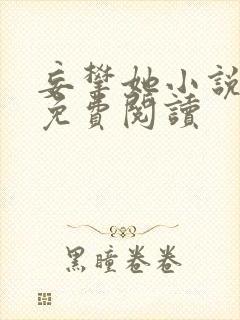 妄攀她小說
免費閱讀
黑瞳卷卷